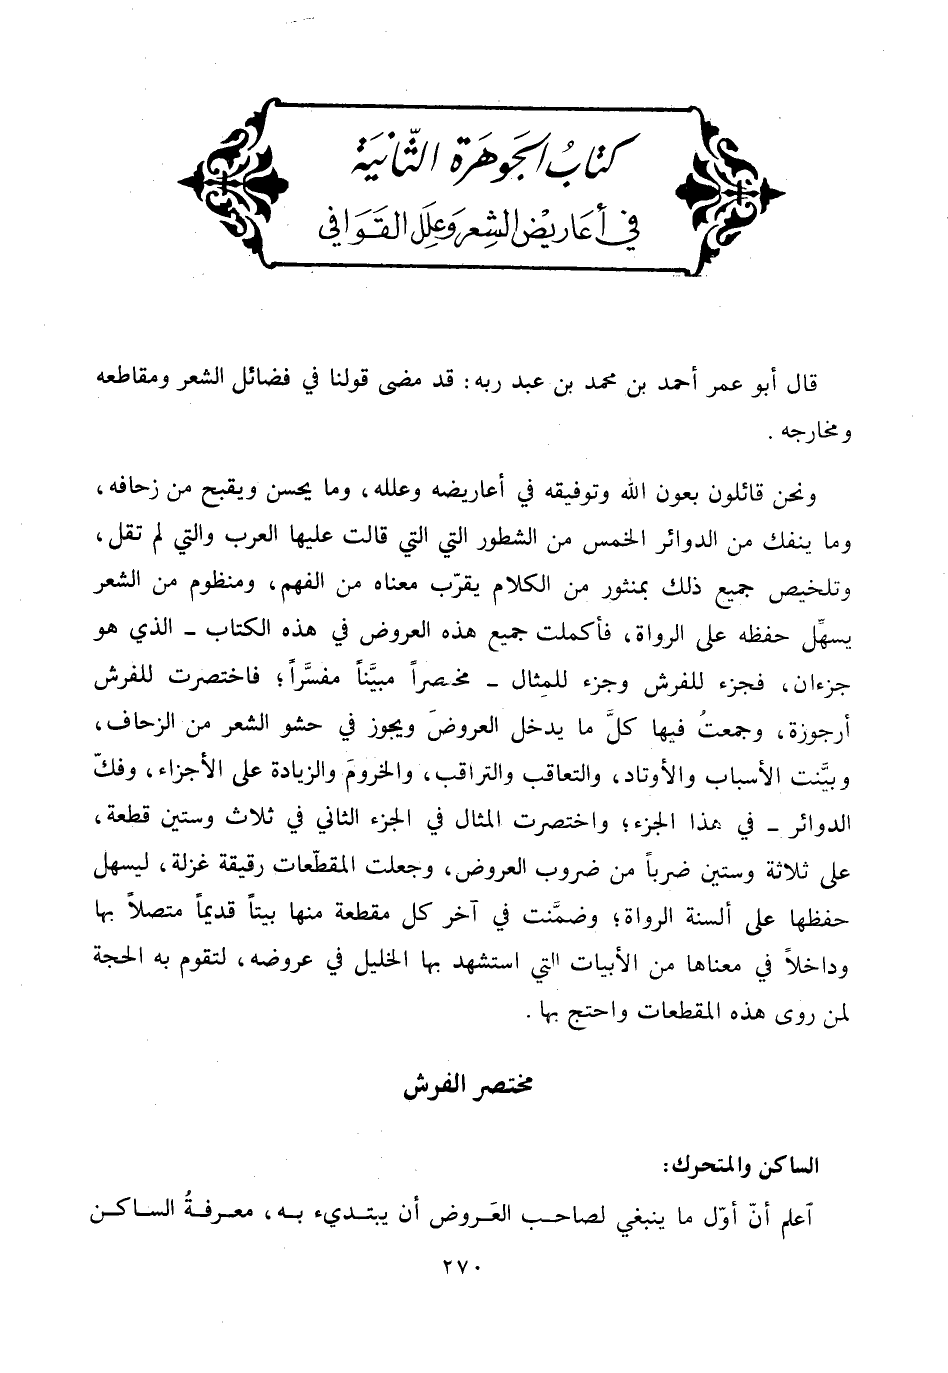 كتابُ الجَوهَرة الثّانِيَة
في أعَاريْض الشِعر وَعِلَل القَوَافي
قال أبو عمر أحمد بن محمد بن عبد ربه: قد مضى قولنا في فضائل الشعر ومقاطعه
ومخارجه .
ونحن قائلون بعون الله وتوفيقه في أعاريضه وعلله، وما يحسن ويقبح من زحافه،
وما ينفك من الدوائر الخمس من الشطور التي التي قالت عليها العرب والتي لم تقل،
وتلخيص جميع ذلك بمنثور من الكلام يقرّب معناه من الفهم، ومنظوم من الشعر
يسهِّل حفظه على الرواة، فأكملت جميع هذه العروض في هذه الكتاب ـ الذي هو
جزءان، فجزء للفرش وجزء للمِثال ـ مختصراً مبيَّناً مفسَّراً؛ فاختصرت للفرش
أرجوزة، وجمعتُ فيها كلَّ ما يدخل العروضَ ويجوز في حشو الشعر من الزحاف،
وبيَّنت الأسباب والأوتاد، والتعاقب والتراقب، والخرومَ والزيادة على الأجزاء، وفكّ
الدوائر ـ في هذا الجزء؛ واختصرت المثال في الجزء الثاني في ثلاث وستين قطعة،
على ثلاثة وستين ضرباً من ضروب العروض، وجعلت المقطّعات رقيقة غزلة، ليسهل
حفظها على ألسنة الرواة؛ وضمَّنت في آخر كل مقطعة منها بيتاً قديماً متصلاً بها
وداخلاً في معناها من الأبيات التي استشهد بها الخليل في عروضه، لتقوم به الحجة
لمن روى هذه المقطعات واحتج بها .
مختصر الفرش
الساكن والمتحرك:
آعلم أنّ أوّل ما ينبغي لصاحب العَروض أن يبتديء به، معرفةُ الساكن
٢٧٠